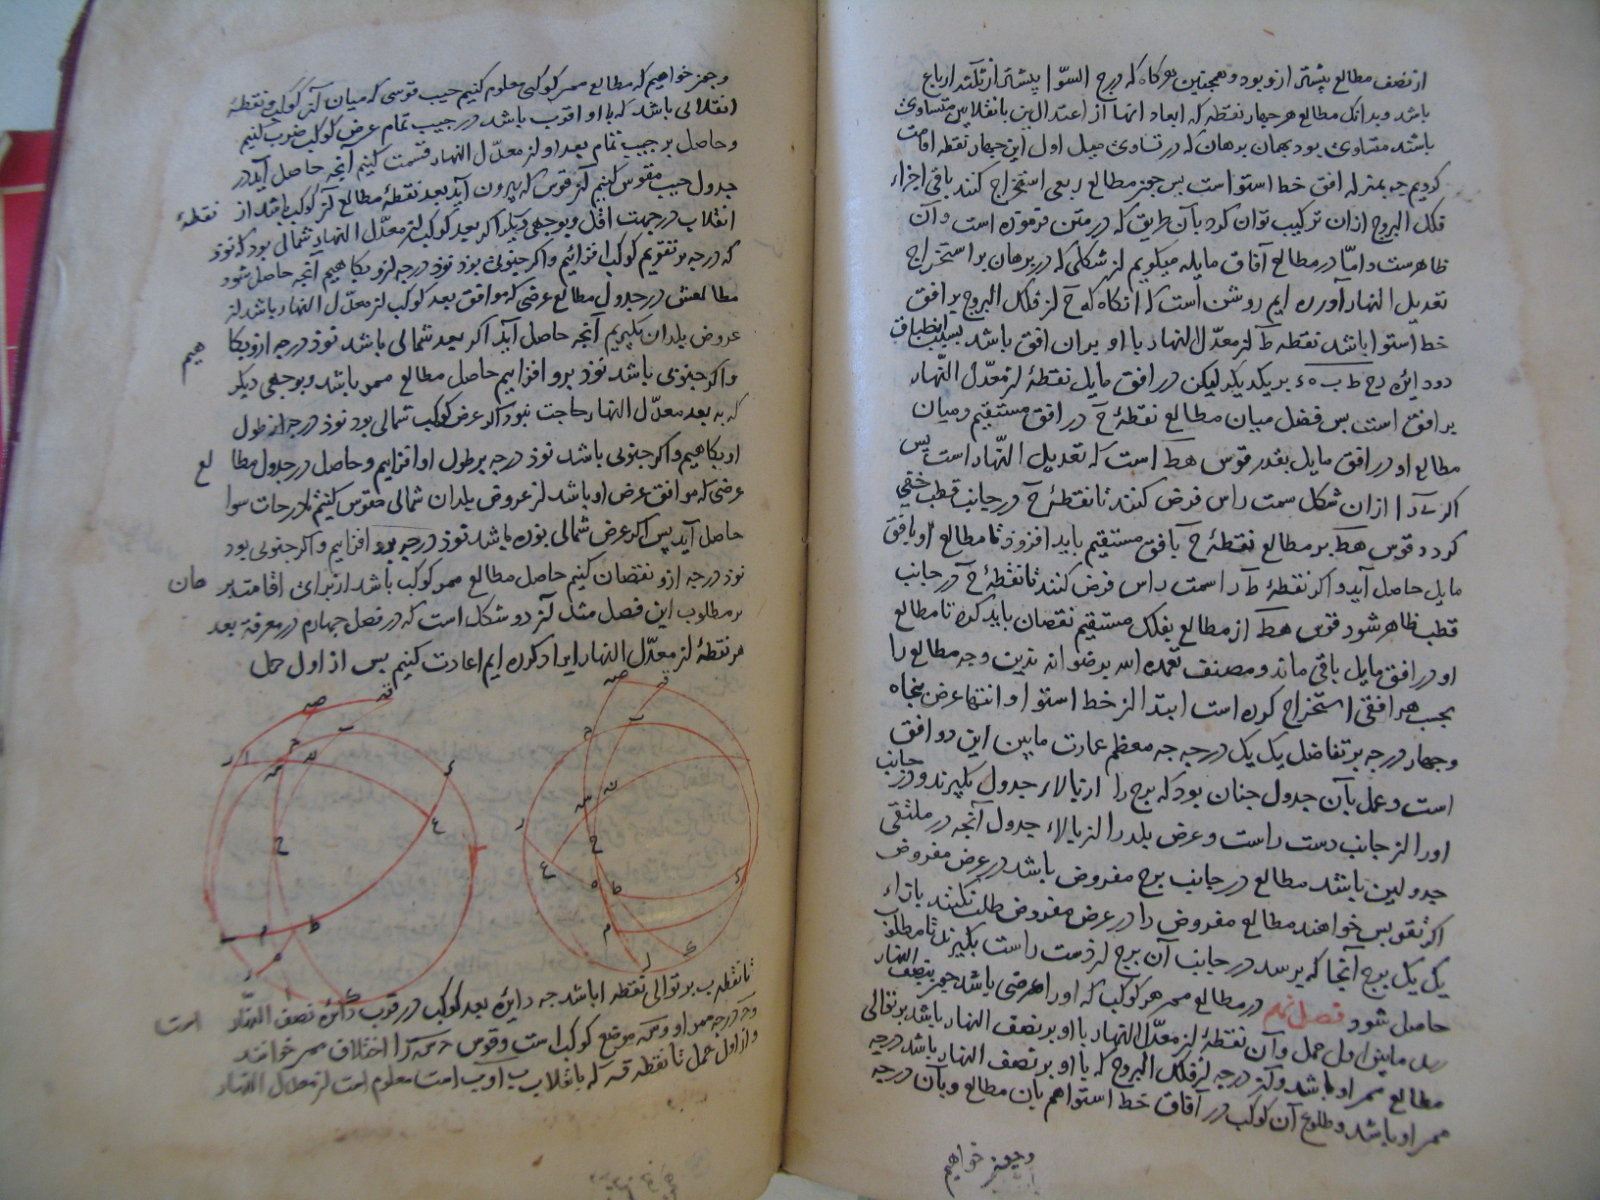 از نصف مطالع پیشتر ازو بود و همچنین هرگاه که درج السوا پیشتر از ثلثه ارباع
باشد و بدانک مطالع هر چهار نقطه که ابعاد انها از اعتدالین یا انقلابین متساوی
باشد متساوی بود بهمان برهان که در تساوی میل اول این چهار نقطه اقامت
کردیم چه بمنزله افق خط استوا است بس چون مطالع ربعی استخراج کنند باقی اجزاء
فلک البروج ازان ترکیب توان کرد بآن طریق که در متن فرموده است و آن
ظاهرست و امّا در مطالع آفاق مایله میکویم از شکلی که در برهان بر استخراج
تعدیل النهار آورده ایم روشن است که انکاه که ح از فلک البروج بر افق
خط استوا باشد نقطه ط از معدّل النهار با او بران افق باشد بسبب انطباق
دو دایره بر یکدیکر لیکن در افق مایل نقطهٔ از معدّل النّهار
بر افق است بس فضل میان مطالع نقطهٔ ح در افق مستقیم و میان
مطالع او در افق مایل بقدر قوس هط است که تعدیل النّهار است پس
اکر ازان شکل سمت راس فرض کنند تا نقطهٔ ح در جانب قطب خفی
کردد قوس هط بر مطالع نقطهٔ ح بافق مستقیم باید افزود تا مطالع او بافق
مایل حاصل آید و اکر نقطهٔ را سمت راس فرض کنند تا نقطهٔ ح در جانب
قطب ظاهر شود قوس هط از مطالع بفلک مستقیم نقصان باید کرد تا مطالع
او در افق مایل باقی ماند و مصنف تغمده الله برضوانه بدین وجه مطالع را
بجسب هر افقی استخراج کرده است ابتدا از خط استوا و انتها عرض پنجاه
و چهار درجه بر تفاضل یک یک درجه چه معظم عمارت مابین این دو افق
است و عمل بآن جدول چنان بود که برج را از بالاء جدول بکیرند و درجات جانب
او را از جانب دست راست و عرض بلد را از بالاء جدول آنچه در ملتقی
جدولین باشد مطالع در جانب برج مفروض باشد در عرض مفروض
اکر تقویس خواهند مطالع مفروض را در عرض مفروض طلب کنند بازاء
یک یک برج آنجا که برسد در جانب آن برج از دست راست بکیرند تا مطلوب
حاصل شود فصل نهم در مطالع ممر هر کوکب که او را عرضی باشد چون بنصف النهار
رسد مابین اول حمل و آن نقطهٔ از معدّل النهار با او بر نصف النهار باشد بر توالی
مطالع ممر او باشد و آن درجه از فلک البروج که با او بر نصف النهار باشد درجه
ممر او باشد و طلوع آن کوکب در آفاق خط استوا هم بآن مطالع و بآن درجه
و چون خواهیم
و چون خواهیم که مطالع ممر کوکبی معلوم کنیم جیب قوسی که میان آن کوکب و نقطهٔ
انقلابی باشد که با او اقرب باشد در جیب تمام عرض کوکب ضرب کنیم
و حاصل بر جیب تمام بعد او از معدّل النهار قسمت کنیم آنچه حاصل آید در
جدول جیب مقوس کنیم از قوس که بیرون آید بعد نقطهٔ مطالع آن کوکب باشد از نقطهٔ
انقلاب در جهت اقل و بوجهی دیکر اکر بعد کوکب از معدّل النهار شمالی بود نود
که درجه بر تقویم کوکب افزائیم و اکر جنوبی بود نود درجه ازو بکاهیم آنچه حاصل شود
مطالعش در جدول مطالع عرضی که موافق بعد کوکب از معدّل النهار باشد از
عروض بلدان بکیریم آنچه حاصل آید اکر بعد شمالی باشد نود درجه ازو بکاهیم
و اکر جنوبی باشد نود برو افزاییم حاصل مطالع ممر باشد و بوجهی دیکر
که به بعد معدّل النهار حاجت نبود اکر عرض کوکب شمالی بود نود درجه از طول
او بکاهیم و اکر جنوبی باشد نود درجه بر طول او افزاییم و حاصل در جدول مطالع
عرضی که موافق عرض او باشد از عروض بلدان شمالی مقوس کنیم تا درجات سوا
حاصل آید پس اکر عرض شمالی بوده باشد نود درجه برو افزاییم و اکر جنوبی بود
نود درجه ازو نقصان کنیم حاصل مطالع ممر کوکب باشد از برای اقامت برهان
بر مطلوب این فصل مثل آن دو شکل است که در فصل چهارم در معرفة بعد
هر نقطهٔ از معدّل النهار ایراد کرده ایم اعادت کنیم بس از اول حمل
تا نقطه ب بر توالی نقطه ا باشد چه دایرهٔ بعد کوکب در قرب دائرهٔ نصف النّهار است
و درجه ممر او و موضع کوکب است و قوس را اختلاف ممر خوانند
و از اول حمل تا نقطه که بانقلاب باوب است معلوم است از معدل النهار